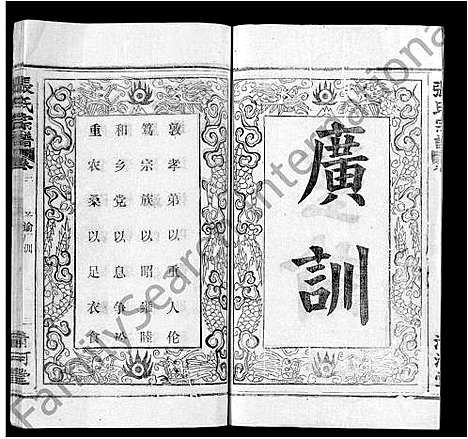 廣訓
敦孝弟以重人伦
笃宗族以昭雍睦
和乡党以息争讼
重农桑以足衣食
張氏宗譜
張氏宗譜
諭訓
FamilySearch International